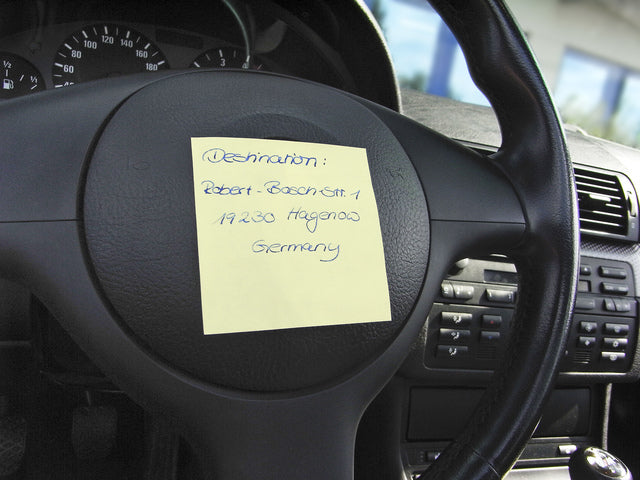 Destination:
Robert-Bosch-Str. 1
19230 Hagenow
Germany
80 100 120 140
60 160
180
3 4
1/2
1/1